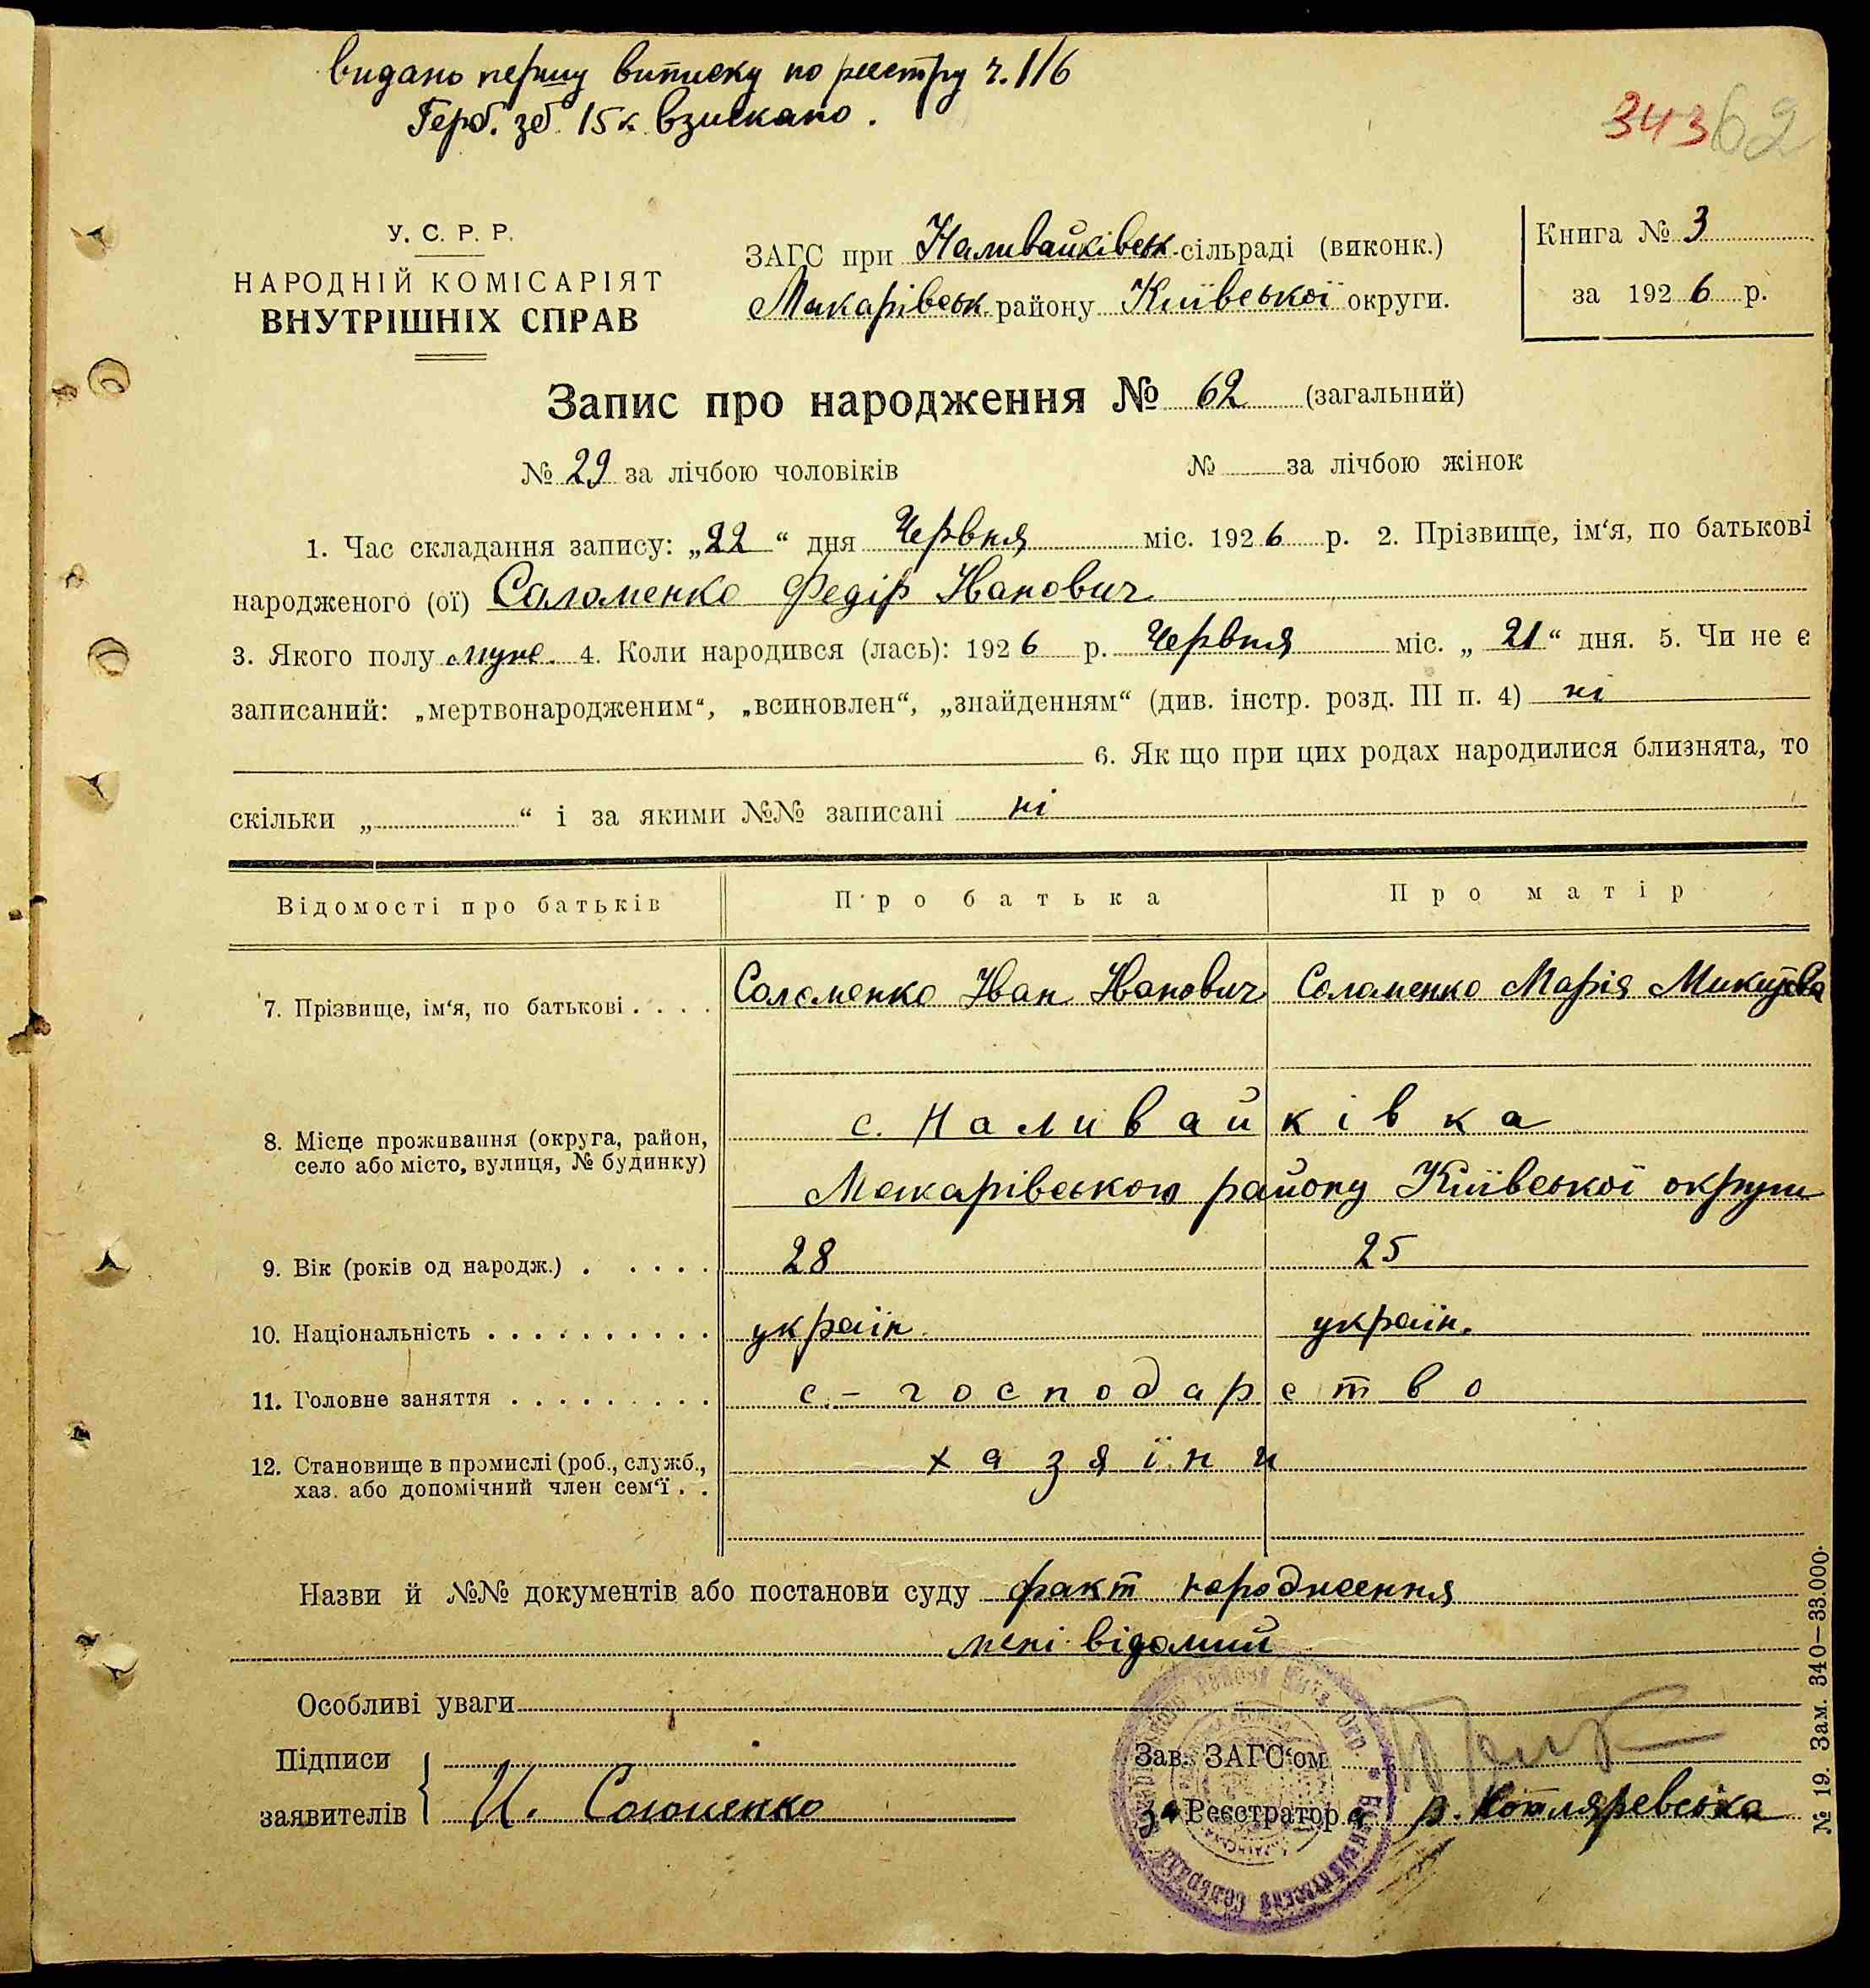 видано першу виписку по реєстру ч. 116
Герб. зб. 15 к. взискано.
343 62
У. С. Р. Р.
НАРОДНІЙ КОМІСАРІЯТ
ВНУТРІШНІХ СПРАВ
ЗАГС при Наливайківськ. сільраді (виконк.)
Макарівськ. району Київської округи.
Книга № 3
за 1926 р.
Запис про народження № 62 (загальний)
№ 29 за лічбою чоловіків № за лічбою жінок
1. Час складання запису: „22“ дня Червня міс. 1926 р. 2. Прізвище, ім‘я, по батькові
народженого (ої) Соломенко Федір Іванович
3. Якого полу муже. 4. Коли народився (лась): 1926 р. Червня міс. „21“ дня. 5. Чи не є
записаний: „мертвонародженим“, „всиновлен“, „знайденням“ (див. інстр. розд. III п. 4) ні
6. Як що при цих родах народилися близнята, то
скільки „ “ і за якими №№ записані ні
Відомості про батьків Про батька Про матір
7. Прізвище, ім‘я, по батькові . . . . Соломенко Іван Іванович Соломенко Марія Микитова
8. Місце проживання (округа, район, с. Наливайківка
село або місто, вулиця, № будинку)
Макарівського району Київської округи
9. Вік (років од народж.) . . . . . 28 25
10. Національність . . . . . . . . . . україн. україн.
11. Головне заняття . . . . . . . . . с.-господарство
12. Становище в промислі (роб., служб., хазяїни
хаз. або допомічний член сем‘ї . .
Назви й №№ документів або постанови суду факт народження
мені відомий
Особливі уваги
Підписи
заявителів И. Соломенко
Зав. ЗАГС‘ом
За Реєстратора Р. Котляревська
№ 19. Зам. 340—33.000.